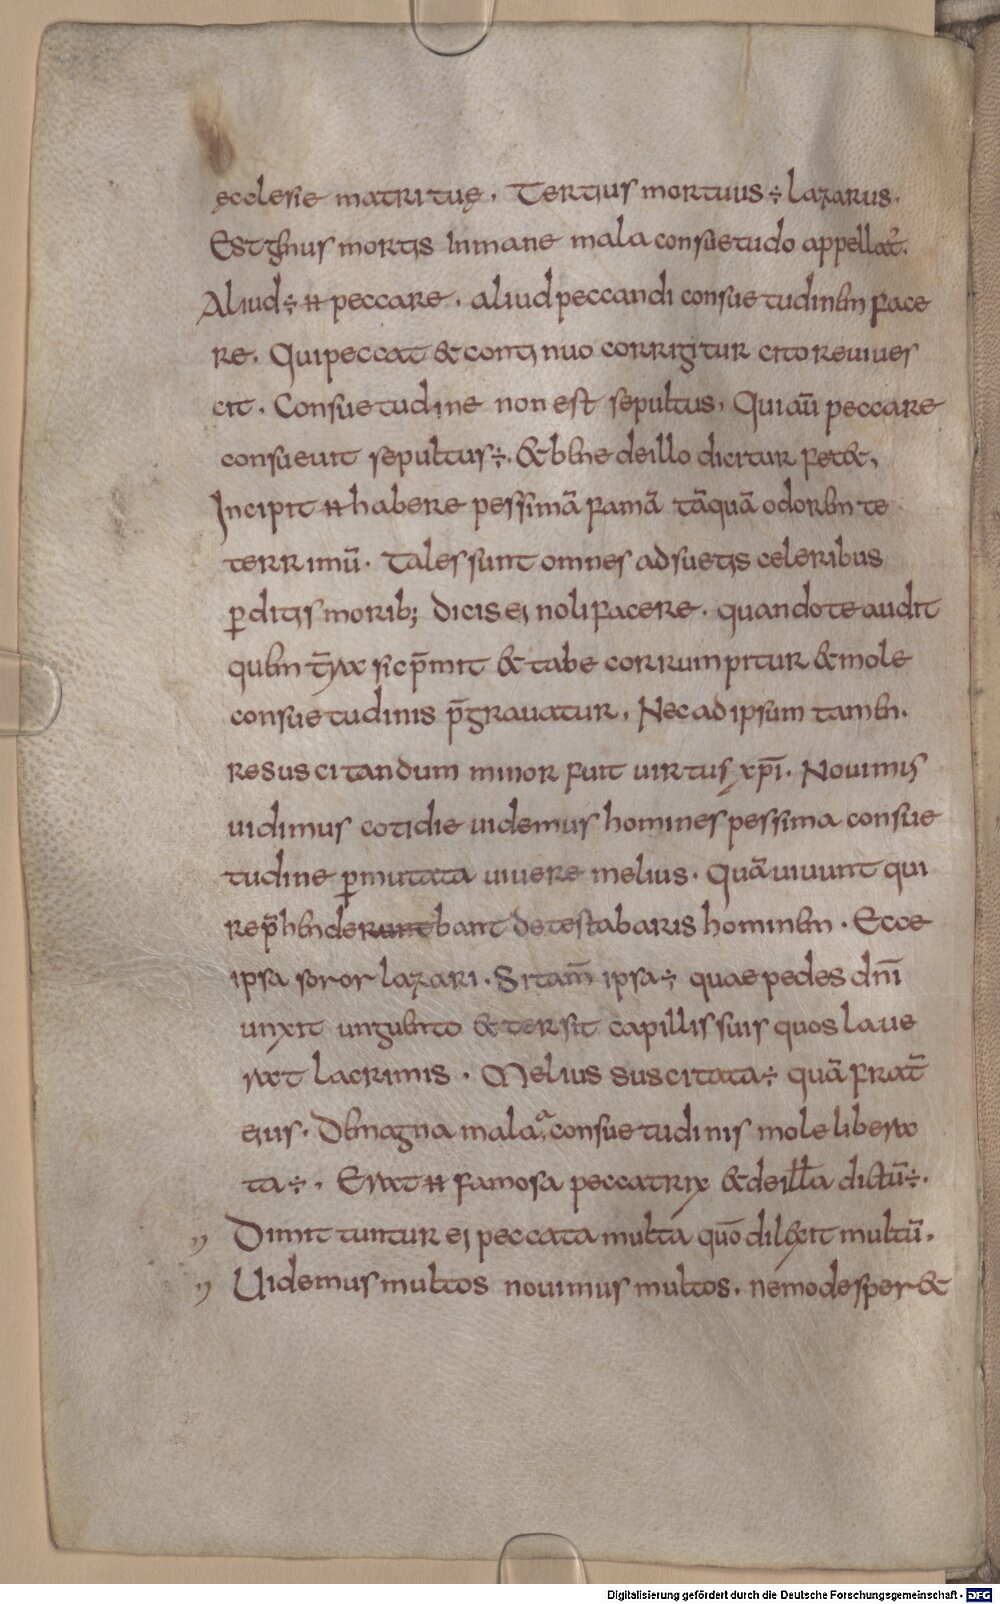 ęcclesie matri tuę. Tertius mortuus ÷ lazarus.
Est ghnus mortis Inmane mala consuetudo appellat̄.
Aliud ÷ ƕ peccare. aliud peccandi consuetudinem face
re. Qui peccat & continuo corrigitur cito reuiues
cit. Consuetudine non est sepultus, Qui aū peccare
consueuit sepultus ÷. & bene de illo dicitur fet&,
Incipit ƕ habere pessimā famā tāquā odorem te
terrimū. Tales sunt omnes adsuetis celeribus
p̱ditis morib; dicis ei noli facere. quando te audit
quem t̄ra sic p̄mit & tabe corrumpitur & mole
consuetudinis p̄grauatur, Nec ad ipsum tamen.
resuscitandum minor fuit uirtus xp̄i. Nouimus
uidimus cotidie uidemus homines pessima consue
tudine p̱mutata uiuere melius. Quā uiuunt qui
rep̄henderuntbant detestabaris hominem. Ecce
ipsa soror lazari. Si tam̄ ipsa ÷ quae pedes dn̄i
unxit unguento & tersit capillis suis quos laue
rat lacrimis. Melius suscitata ÷ quā frat̄
eius. De magna mala, a consuetudinis mole libera
ta ÷. Erat ƕ famosa peccatrix & de illa dictū ÷.
” Dimittuntur ei peccata multa quō dilexit multū.
” Uidemus multos nouimus multos. nemo desper&
Digitalisierung gefördert durch die Deutsche Forschungsgemeinschaft - DFG